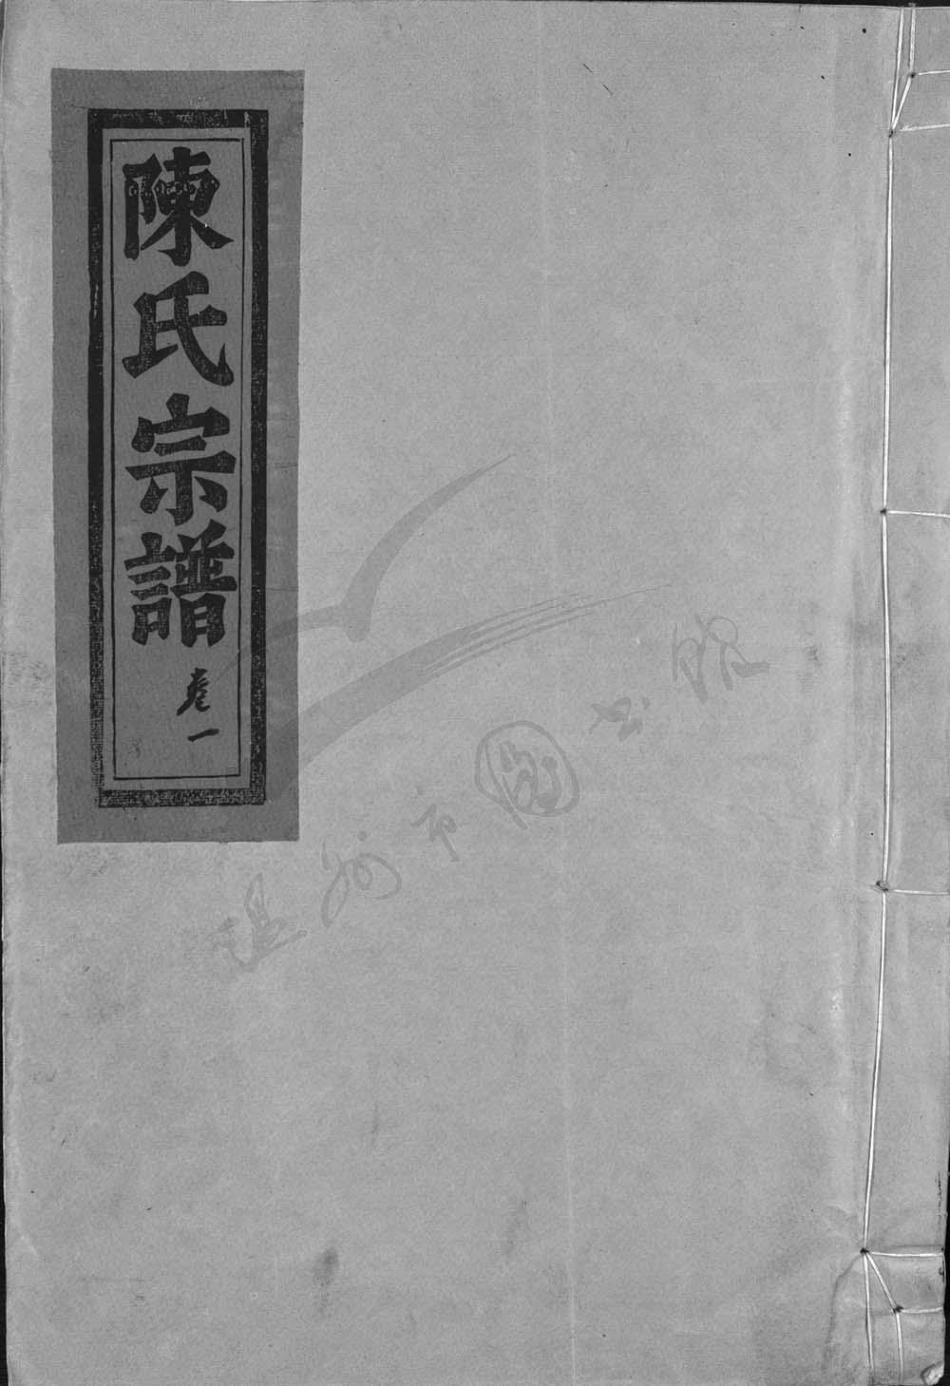 陳氏宗譜
卷一
温州市图书馆